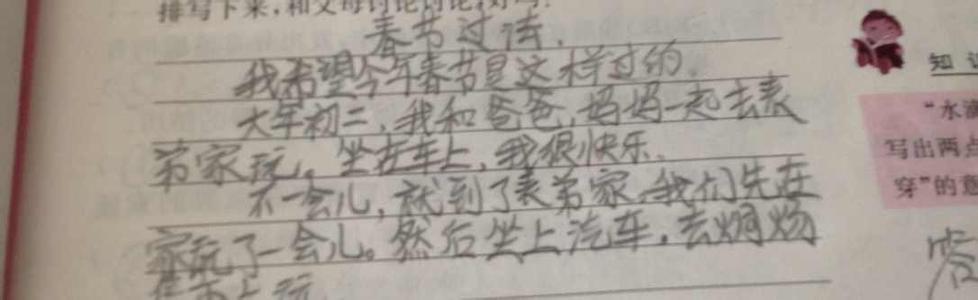 排写下来,和父母讨论讨论,好吗?
春节过法.
我希望今年春节是这样过的.
大年初三,我和爸爸,妈妈一起去表
弟家玩。坐在车上,我很快乐.
不一会儿,就到了表弟家,我们先在
家玩了一会儿。然后坐上汽车,去
上玩
知
“水
写出两点
穿”的意